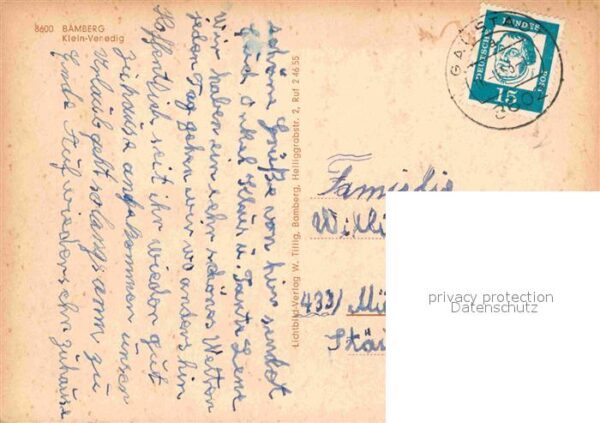 8600 BAMBERG
Klein-Venedig
schöne Grüße von hier sendet
Euch Onkel Klaus u. Tante Lene
Wir haben ein sehr schönes Wetter
jeden Tag gehen wir wo anders hin
Hoffentlich seit ihr wieder gut
Zuhause angekommen unser
Urlaub geht so langsam zu
Ende Auf wiedersehn zuhause
Lichtbild-Verlag W. Tillig, Bamberg, Heiliggrabstr. 2, Ruf 2 46 55
DEUTSCHE BUNDESPOST
15
Familie
433
privacy protection
Datenschutz